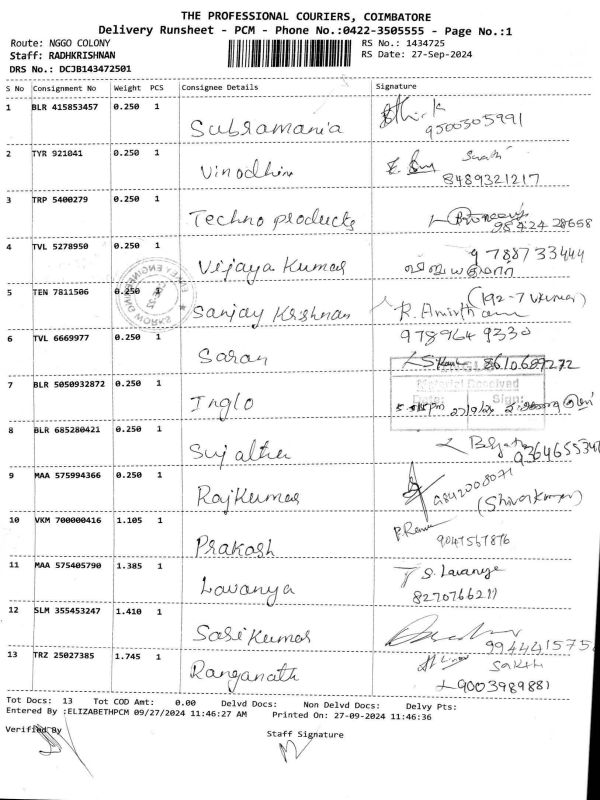 THE PROFESSIONAL COURIERS, COIMBATORE
Delivery Runsheet - PCM - Phone No.:0422-3505555 - Page No.:1
Route: NGGO COLONY RS No.: 1434725
Staff: RADHKRISHNAN RS Date: 27-Sep-2024
DRS No.: DCJB143472501
S No Consignment No Weight PCS Consignee Details Signature
1 BLR 415853457 0.250 1 Subramania
9500305991
2 TYR 921041 0.250 1 Vinodhini Swathi
8489321217
3 TRP 5400279 0.250 1 Techno products
98424 28658
4 TVL 5278950 0.250 1 Vijaya Kumar 9788733444
விஜயகுமார்
5 TEN 7811506 0.250 1 Sanjay Krishnan
R. Amirtham
6 TVL 6669977 0.250 1 Saran 978964 9330
8610689272
7 BLR 5050932872 0.250 1 Inglo
Material Received
Date: Sign:
8 BLR 685280421 0.250 1 Sujatha
9 MAA 575994366 0.250 1 Rajkumar 9842008071
(Shivakumar)
10 VKM 700000416 1.105 1 Prakash
9047567876
11 MAA 575405790 1.385 1 Lavanya S. Lavanya
8270766211
12 SLM 355453247 1.410 1 Sasikumar
994441575
13 TRZ 25027385 1.745 1 Ranganath Sakthi
9003989881
Tot Docs: 13 Tot COD Amt: 0.00 Delvd Docs: Non Delvd Docs: Delvy Pts:
Entered By :ELIZABETHPCM 09/27/2024 11:46:27 AM Printed On: 27-09-2024 11:46:36
Verified By Staff Signature